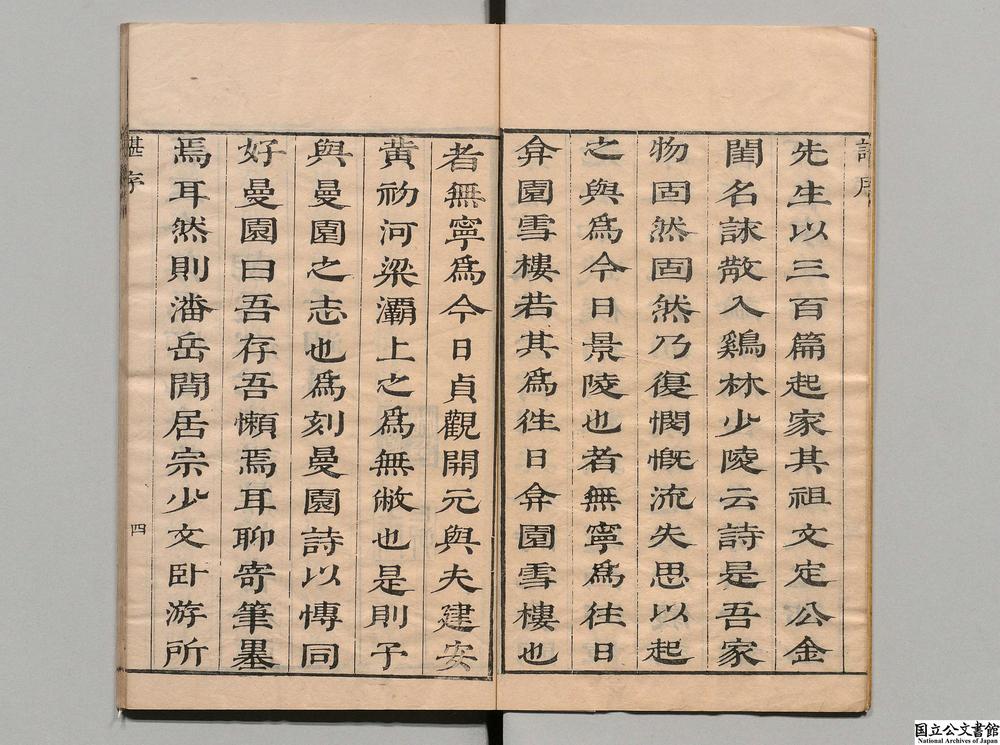 先生以三百篇起家其祖文定公金
閨名誄散入鷄林少陵云詩是吾家
物固然固然乃復憫慨流失思以起
之與爲今日景陵也者無寧爲往日
弇園雪樓若其爲往日弇園雪樓也
者無寧爲今日貞觀開元與夫建安
黄初河梁灞上之爲無敝也是則予
與曼園之志也爲刻曼園詩以傳同
好曼園曰吾存吾懶焉耳聊寄筆墨
焉耳然則潘岳閒居宗少文臥游所
四
国立公文書館
National Archives of Japan